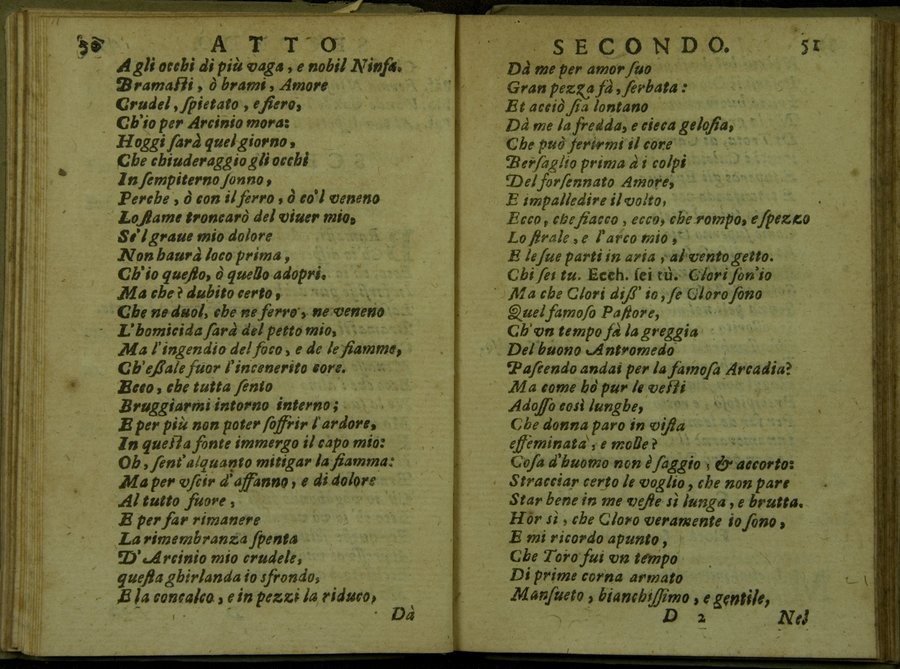 50 ATTO
A gli occhi di più vaga, e nobil Ninfa.
Bramaſti, ò brami, Amore
Crudel, ſpietato, e fiero,
Ch'io per Arcinio mora:
Hoggi ſarà quel giorno,
Che chiuderaggio gli occhi
In ſempiterno ſonno,
Perche, ò con il ferro, ò co'l veneno
Lo ſtame troncarò del viuer mio,
Se'l graue mio dolore
Non haurà loco prima,
Ch'io queſto, ò quello adopri.
Ma che? dubito certo,
Che ne duol, che ne ferro, ne veneno
L'homicida ſarà del petto mio,
Ma l'ingendio del foco, e de le fiamme,
Ch'eßale fuor l'incenerito core.
Ecco, che tutta ſento
Bruggiarmi intorno interno;
E per più non poter ſoffrir l'ardore,
In queſta fonte immergo il capo mio:
Oh, ſent'alquanto mitigar la fiamma:
Ma per vſcir d'affanno, e di dolore
Al tutto fuore,
E per far rimanere
La rimembranza ſpenta
D'Arcinio mio crudele,
queſta ghirlanda io sfrondo,
E la concalco, e in pezzi la riduco,
Dà
SECONDO. 51
Dà me per amor ſuo
Gran pezza fà, ſerbata:
Et acciò ſia lontano
Dà me la fredda, e cieca geloſia,
Che può ferirmi il core
Berſaglio prima à i colpi
Del forſennato Amore,
E impalledire il volto,
Ecco, che fiacco, ecco, che rompo, e ſpezzo
Lo ſtrale, e l'arco mio,
E le ſue parti in aria, al vento getto.
Chi ſei tu. Ecch. ſei tù. Clori ſon'io
Ma che Clori diß'io, ſe Cloro ſono
Quel famoſo Paſtore,
Ch'vn tempo fà la greggia
Del buono Antromedo
Paſcendo andai per la famoſa Arcadia?
Ma come hò pur le veſti
Adoſſo così lunghe,
Che donna paro in viſta
effeminata, e molle?
Coſa d'huomo non è ſaggio, & accorto:
Stracciar certo le voglio, che non pare
Star bene in me veſte sì lunga, e brutta.
Hor sì, che Cloro veramente io ſono,
E mi ricordo apunto,
Che Toro fui vn tempo
Di prime corna armato
Manſueto, bianchiſſimo, e gentile,
D 2 Nel